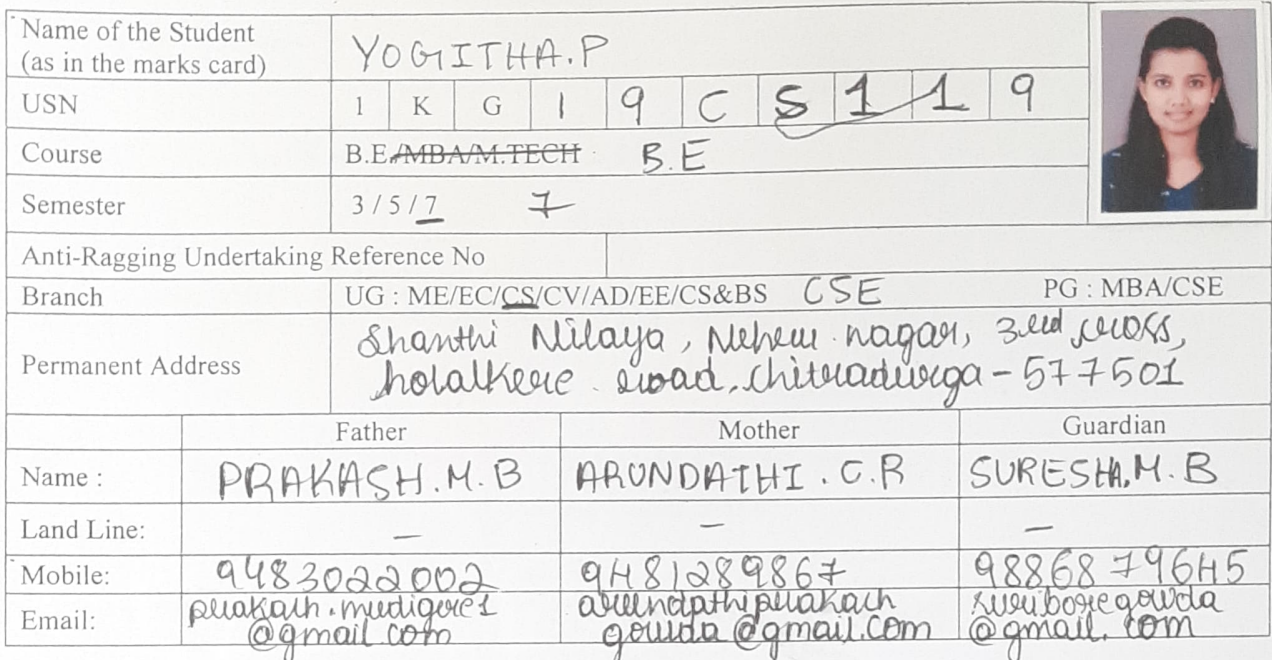 Name of the Student
(as in the marks card) YOGITHA.P
USN 1 K G 1 9 C S 1 1 9
Course B.E./MBA/M.TECH B.E
Semester 3 / 5 / 7 7
Anti-Ragging Undertaking Reference No
Branch UG : ME/EC/CS/CV/AD/EE/CS&BS CSE PG : MBA/CSE
Permanent Address Shanthi Nilaya, Nehru nagar, 3rd cross,
holalkere road, chitradurga - 577501
Father Mother Guardian
Name : PRAKASH.M.B ARUNDATHI.C.R SURESHA.M.B
Land Line: — — —
Mobile: 9483022002 9481289867 9886879645
Email: prakash.mudigere1 arundathiprakash suriboregowda
@gmail.com gowda@gmail.com @gmail.com